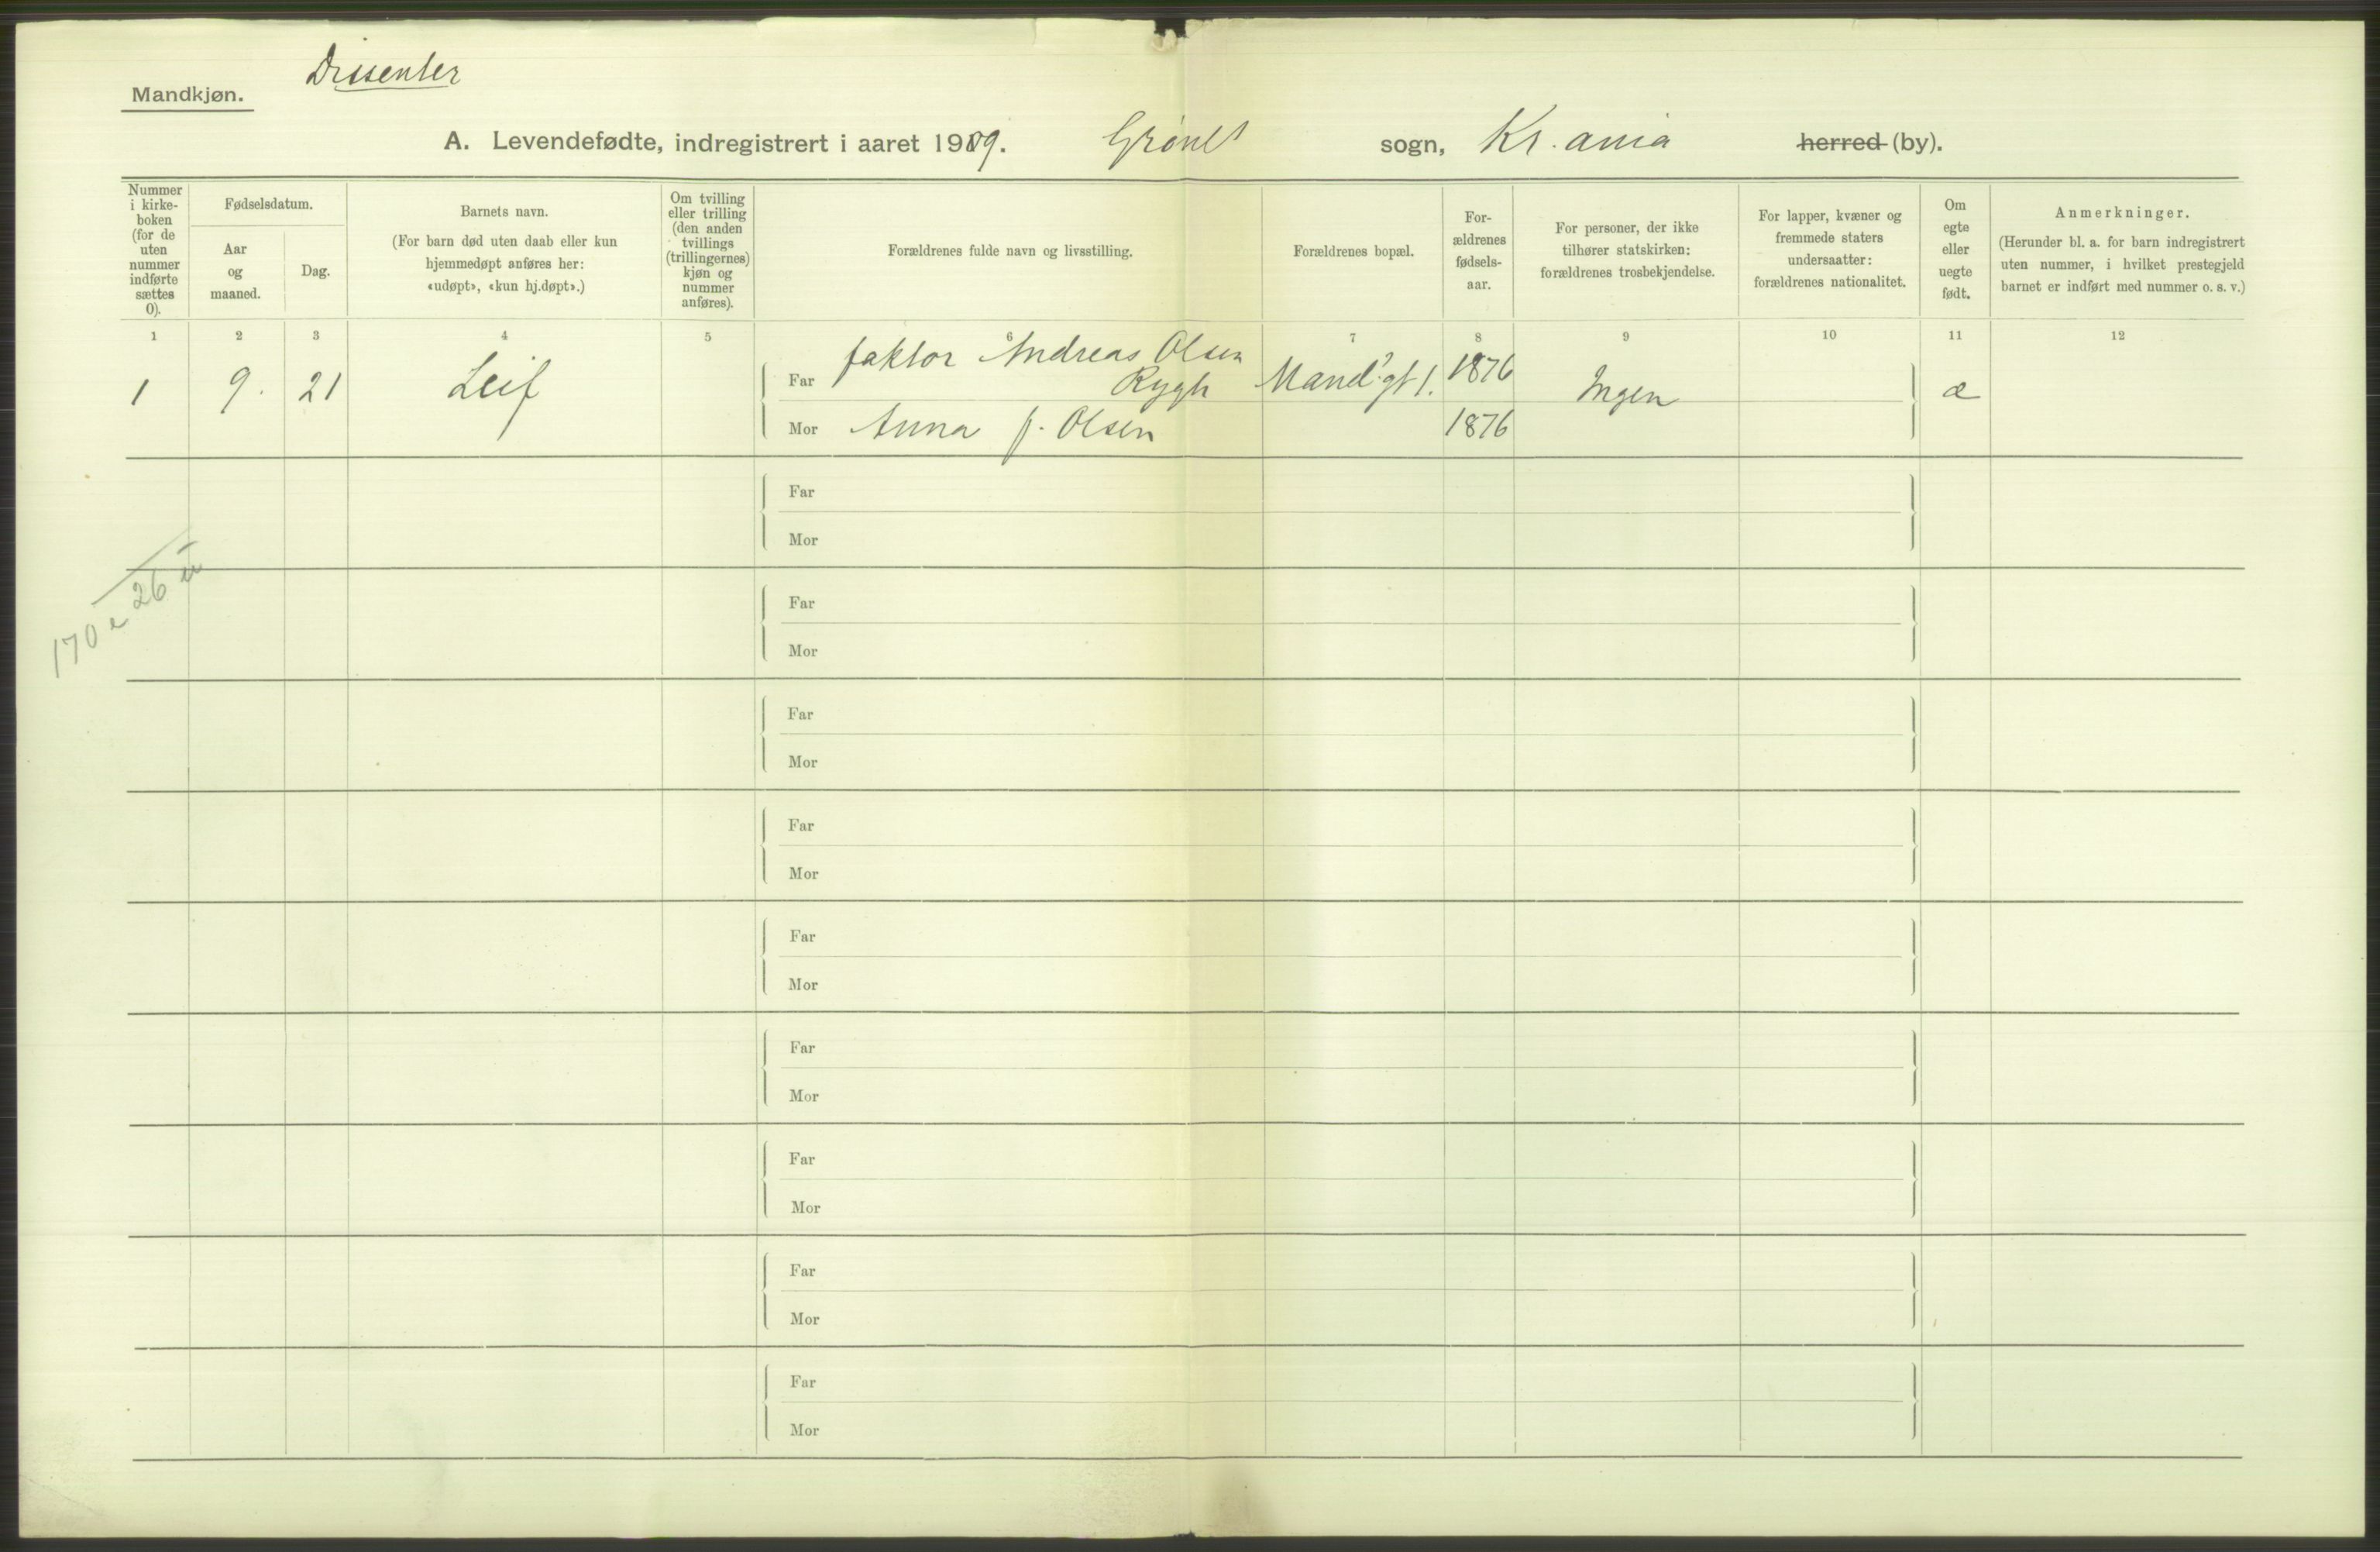 Dissenter
Mandkjøn.
A. Levendefødte, indregistrert i aaret 1909. Grønl sogn, Kr.ania herred (by).
Nummer i kirke-boken (for de uten nummer indførte sættes 0).
Fødselsdatum.
Aar og maaned.
Dag.
Barnets navn.
(For barn død uten daab eller kun hjemmedøpt anføres her: «udøpt», «kun hj.døpt».)
Om tvilling eller trilling (den anden tvillings (trillingernes) kjøn og nummer anføres).
Forældrenes fulde navn og livsstilling.
Forældrenes bopæl.
For-ældrenes fødsels-aar.
For personer, der ikke tilhører statskirken: forældrenes trosbekjendelse.
For lapper, kvæner og fremmede staters undersaatter: forældrenes nationalitet.
Om egte eller uegte født.
Anmerkninger.
(Herunder bl. a. for barn indregistrert uten nummer, i hvilket prestegjeld barnet er indført med nummer o. s. v.)
1 2 3 4 5 6 7 8 9 10 11 12
1 9. 21 Leif Far faktor Andreas Olsen Rygh 1876 Ingen æ
Mor Anna f. Olsen 1876
Far
Mor
Far
Mor
170 e 26 u
Far
Mor
Far
Mor
Far
Mor
Far
Mor
Far
Mor
Far
Mor
Far
Mor